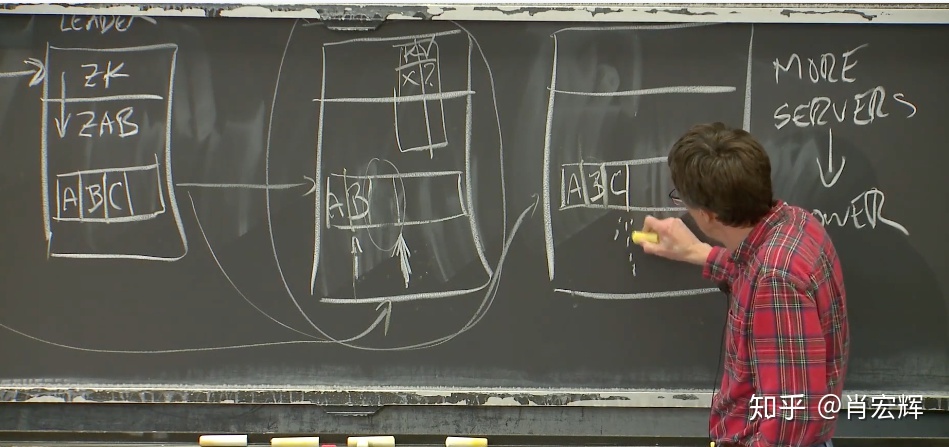 LEADER
ZK
ZAB
A B C
K V
X ?
A B
A B C
MORE
SERVERS
知乎 @肖宏辉